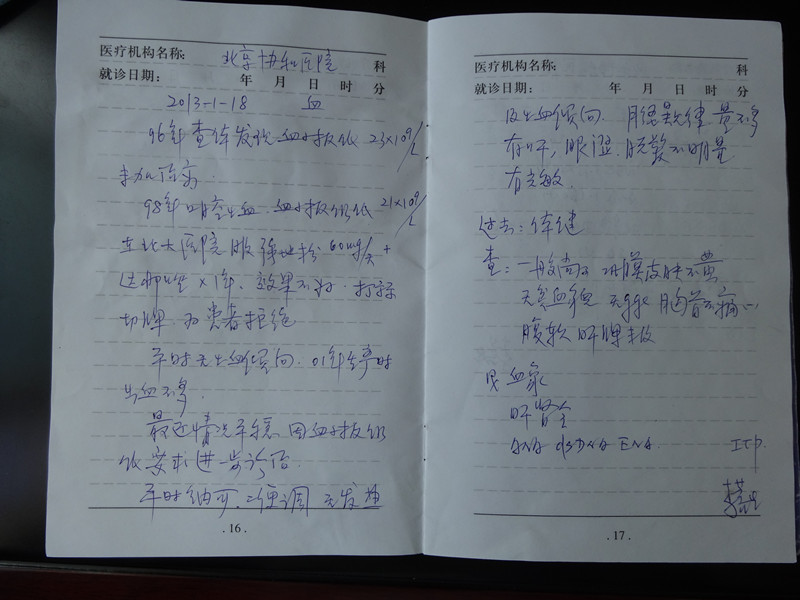 医疗机构名称: 北京协和医院 科
就诊日期: 年 月 日 时 分
2013-1-18 血
96年查体发现血小板低 23×10⁹/L
未加治疗
98年口腔出血 血小板仍低 21×10⁹/L
在北大医院服强地松 60mg/天 +
达那唑×1年、效果不好. 打算
切脾, 为患者拒绝
平时无出血倾向. 01年生产时
出血不多.
最近情况平稳, 因血小板仍
低 要求进一步诊治
平时纳可, 二便调 无发热
. 16 .
医疗机构名称: 科
就诊日期: 年 月 日 时 分
及出血倾向. 月经规律 量不多
有口干, 眼涩. 脱发不明显
有光敏
过去: 体健
查: 一般尚可 巩膜皮肤不黄
胸骨不痛
腹软 肝脾
血象
肝肾全
ANA dsDNA ENA. ITP.
. 17 .